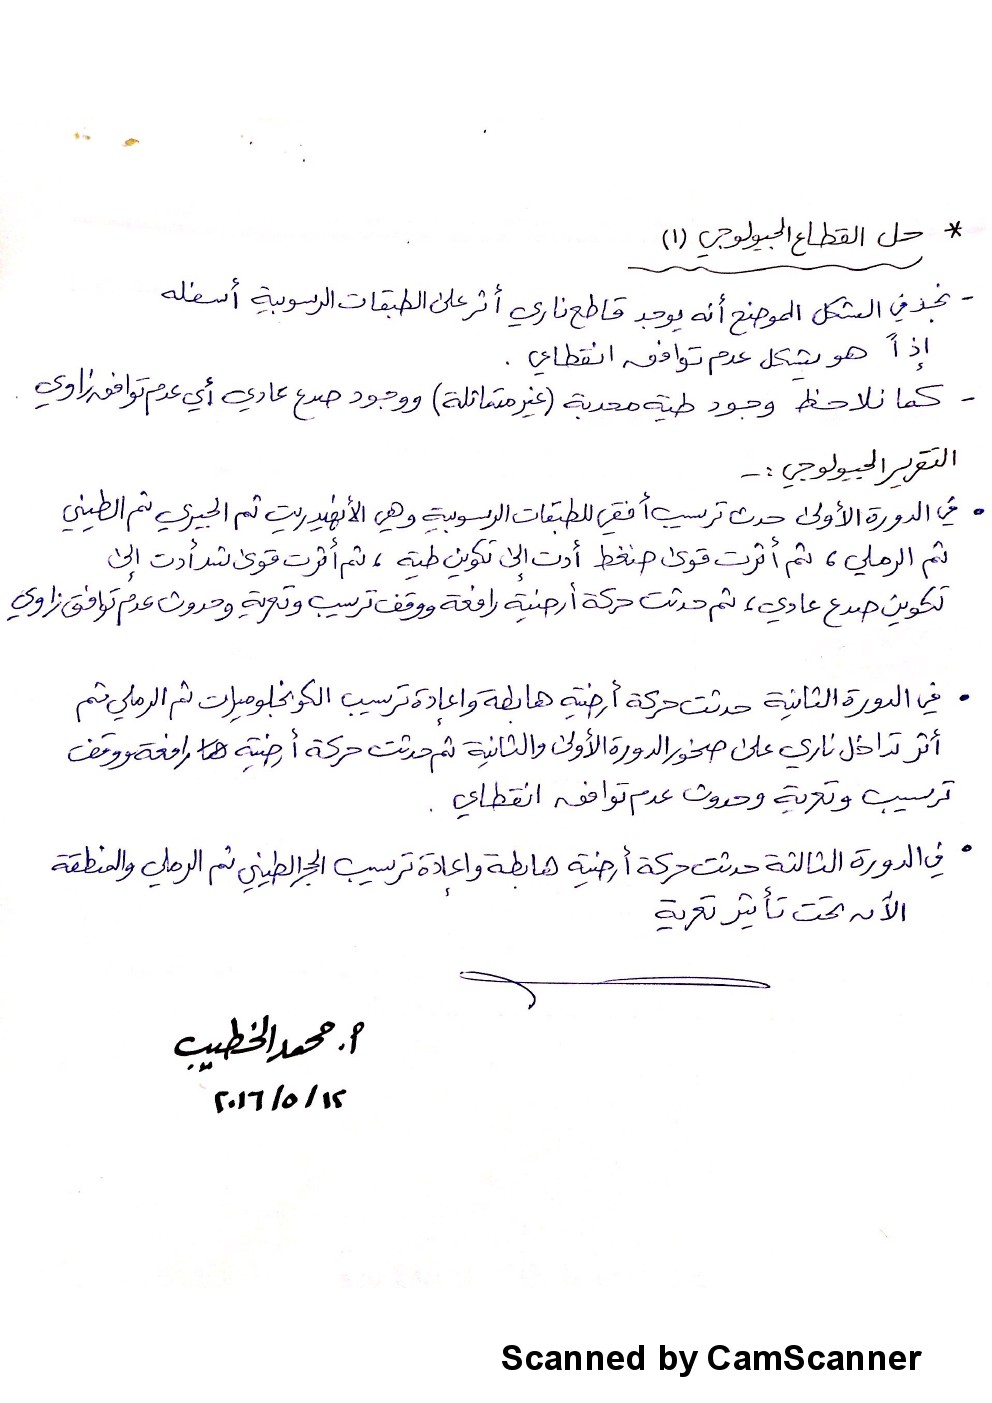 * حل القطاع الجيولوجي (١)
- نجد في الشكل الموضح أنه يوجد قاطع ناري أثر على الطبقات الرسوبية أسفله
إذاً هو يشكل عدم توافق انقطاعي .
- كما نلاحظ وجود طية محدبة (غير متماثلة) ووجود صدع عادي أي عدم توافق زاوي .
التقرير الجيولوجي :-
• في الدورة الأولى حدث ترسيب أفقي للطبقات الرسوبية وهي الأنهيدريت ثم الجيري ثم الطيني
ثم الرملي ، ثم أثرت قوى ضغط أدت إلى تكوين طية ، ثم أثرت قوى شد أدت إلى
تكوين صدع عادي ، ثم حدثت حركة أرضية رافعة ووقف ترسيب وتعرية وحدوث عدم توافق زاوي
• في الدورة الثانية حدثت حركة أرضية هابطة وإعادة ترسيب الكونجلوميرات ثم الرملي ثم
أثر تداخل ناري على صخور الدورة الأولى والثانية ثم حدثت حركة أرضية رافعة ووقف
ترسيب وتعرية وحدوث عدم توافق انقطاعي .
• في الدورة الثالثة حدثت حركة أرضية هابطة وإعادة ترسيب الحجر الطيني ثم الرملي والمنطقة
الآن تحت تأثير تعرية
م. محمد الخطيب
٢٠١٦/٥/١٢
Scanned by CamScanner